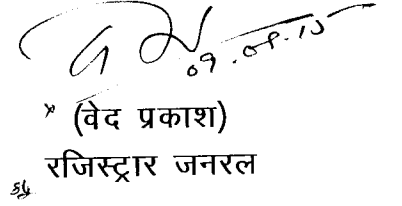 09.09.15
(वेद प्रकाश)
रजिस्ट्रार जनरल